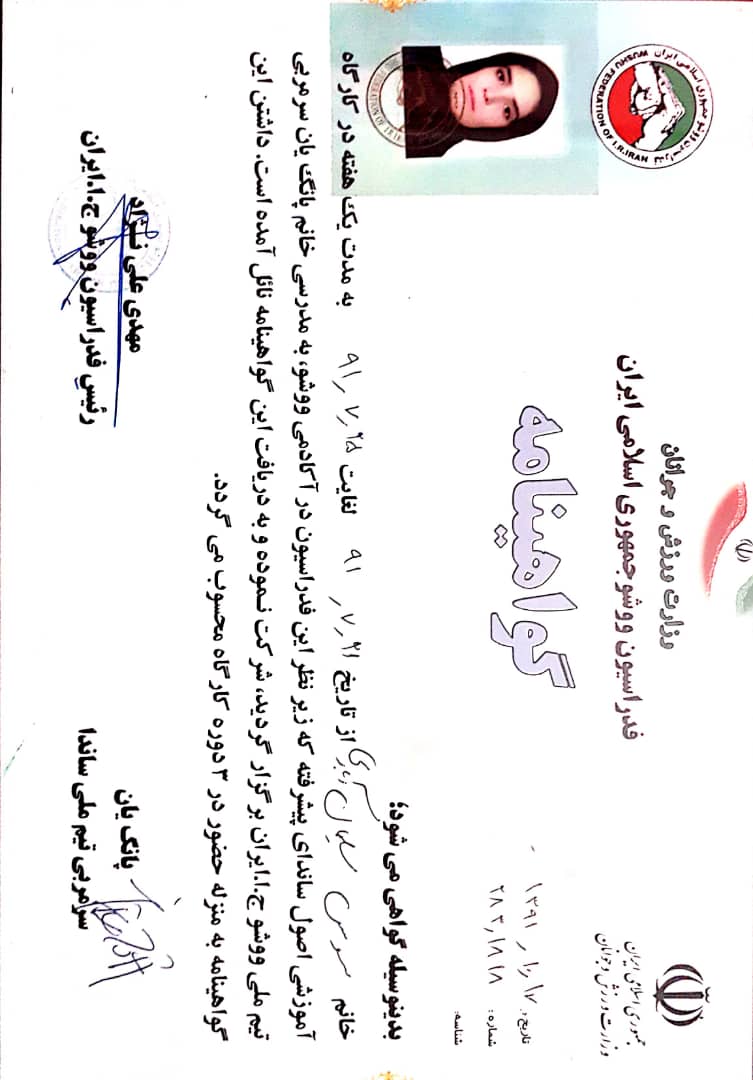 جمهوری اسلامی ایران
وزارت ورزش و جوانان
وزارت ورزش و جوانان
فدراسیون ووشو جمهوری اسلامی ایران
WUSHU FEDERATION OF I.R.IRAN
تاریخ:
شماره: ۲۸۳٫۱۸۱۸
شناسه:
گواهینامه
بدینوسیله گواهی می شود؛
خانم از تاریخ ۹۱٫۷٫۲۱ لغایت ۹۱٫۷٫۲۵ به مدت یک هفته در کارگاه
آموزشی اصول ساندای پیشرفته که زیر نظر این فدراسیون در آکادمی ووشو، به مدرسی خانم پانگ یان سرمربی
تیم ملی ووشو ج.ا.ایران برگزار گردید، شرکت نموده و به دریافت این گواهینامه نائل آمده است. داشتن این
گواهینامه به منزله حضور در ۳ دوره کارگاه محسوب می گردد.
پانگ یان
سرمربی تیم ملی ساندا
مهدی علی نژاد
رئیس فدراسیون ووشو ج.ا.ایران